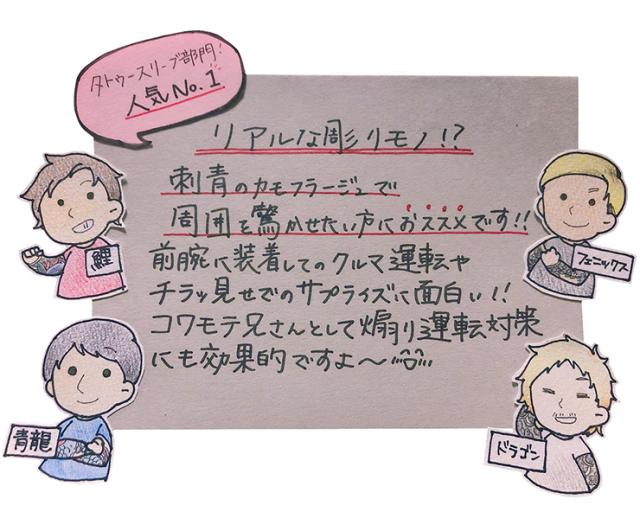 タトゥースリーブ部門!
人気No.1
リアルな彫りモノ!?
刺青のカモフラージュで
周囲を驚かせたい方におススメです!!
前腕に装着してのクルマ運転や
チラッ見せでのサプライズに面白い!!
コワモテ兄さんとして煽り運転対策
にも効果的ですよ～
鯉
フェニックス
青龍
ドラゴン